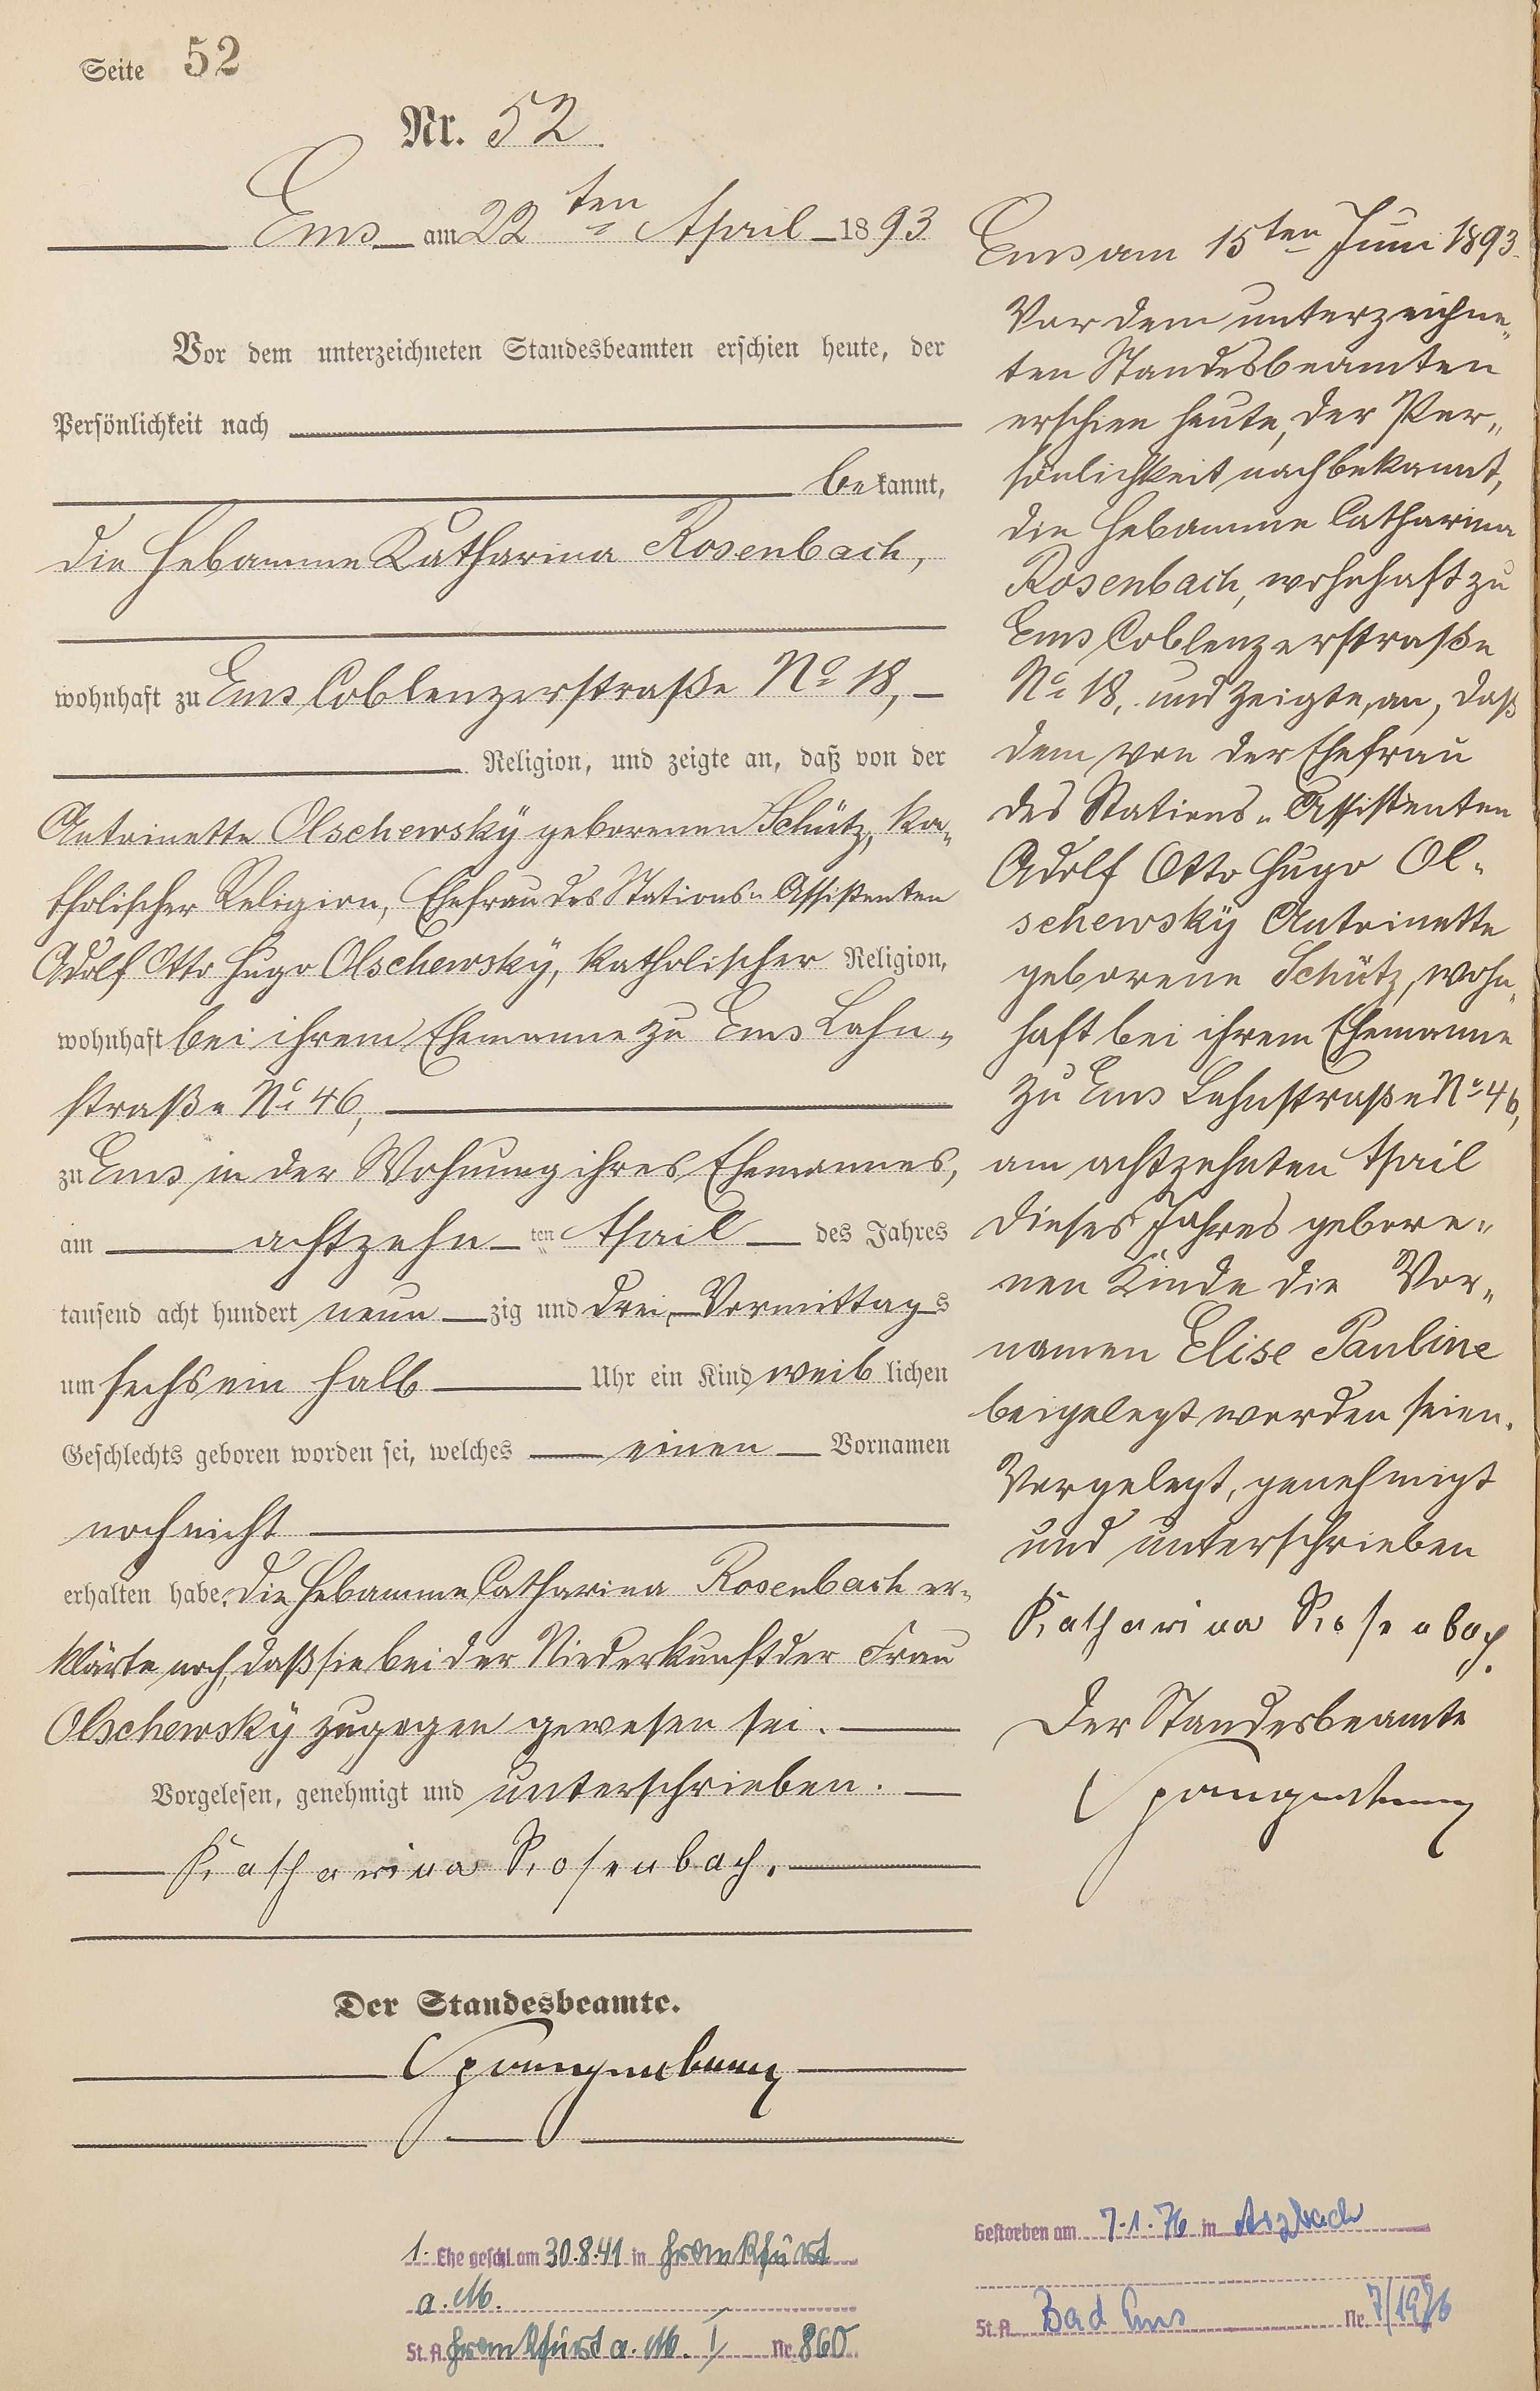 Seite 52
Nr. 52.
Ems am 22ten April 1893
Vor dem unterzeichneten Standesbeamten erschien heute, der
Persönlichkeit nach
bekannt,
die Hebamme Katharina Rosenbach,
wohnhaft zu Ems Coblenzerstraße No 18,
Religion, und zeigte an, daß von der
Antoinette Olschewskÿ geborenen Schütz, ka-
tholischer Religion, Ehefrau des Stations-Assistenten
Adolf Otto Hugo Olschewskÿ, katholischer Religion,
wohnhaft bei ihrem Ehemanne zu Ems Lahn-
straße No 46,
zu Ems in der Wohnung ihres Ehemannes,
am achtzehnten April des Jahres
tausend acht hundert neunzig und drei, Vormittags
um sechs ein halb Uhr ein Kind weiblichen
Geschlechts geboren worden sei, welches einen Vornamen
noch nicht
erhalten habe. Die Hebamme Catharina Rosenbach er-
klärte noch, daß sie bei der Niederkunft der Frau
Olschewskÿ zugegen gewesen sei.
Vorgelesen, genehmigt und unterschrieben.
Katharina Rosenbach.
Der Standesbeamte.
Ems am 15ten Juni 1893.
Vor dem unterzeichne-
ten Standesbeamten
erschien heute, der Per-
sönlichkeit nach bekannt,
die Hebamme Catharina
Rosenbach, wohnhaft zu
Ems Coblenzerstraße
No 18, und zeigte, an, daß
dem von der Ehefrau
des Stations-Assistenten
Adolf Otto Hugo Ol-
schewskÿ Antoinette
geborene Schütz, wohn-
haft bei ihrem Ehemanne
zu Ems Lahnstraße No 46,
am achtzehnten April
dieses Jahres gebore-
nen Kinde die Vor-
namen Elise Pauline
beigelegt worden seien.
Vorgelegt, genehmigt
und unterschrieben
Katharina Rosenbach.
Der Standesbeamte
1. Ehe geschl. am 30.8.41 in Frankfurt
a. M.
St. A. Frankfurt a. M. I Nr. 860
Gestorben am 7.1.76 in Arzbach
St. A. Bad Ems Nr. 7/1976